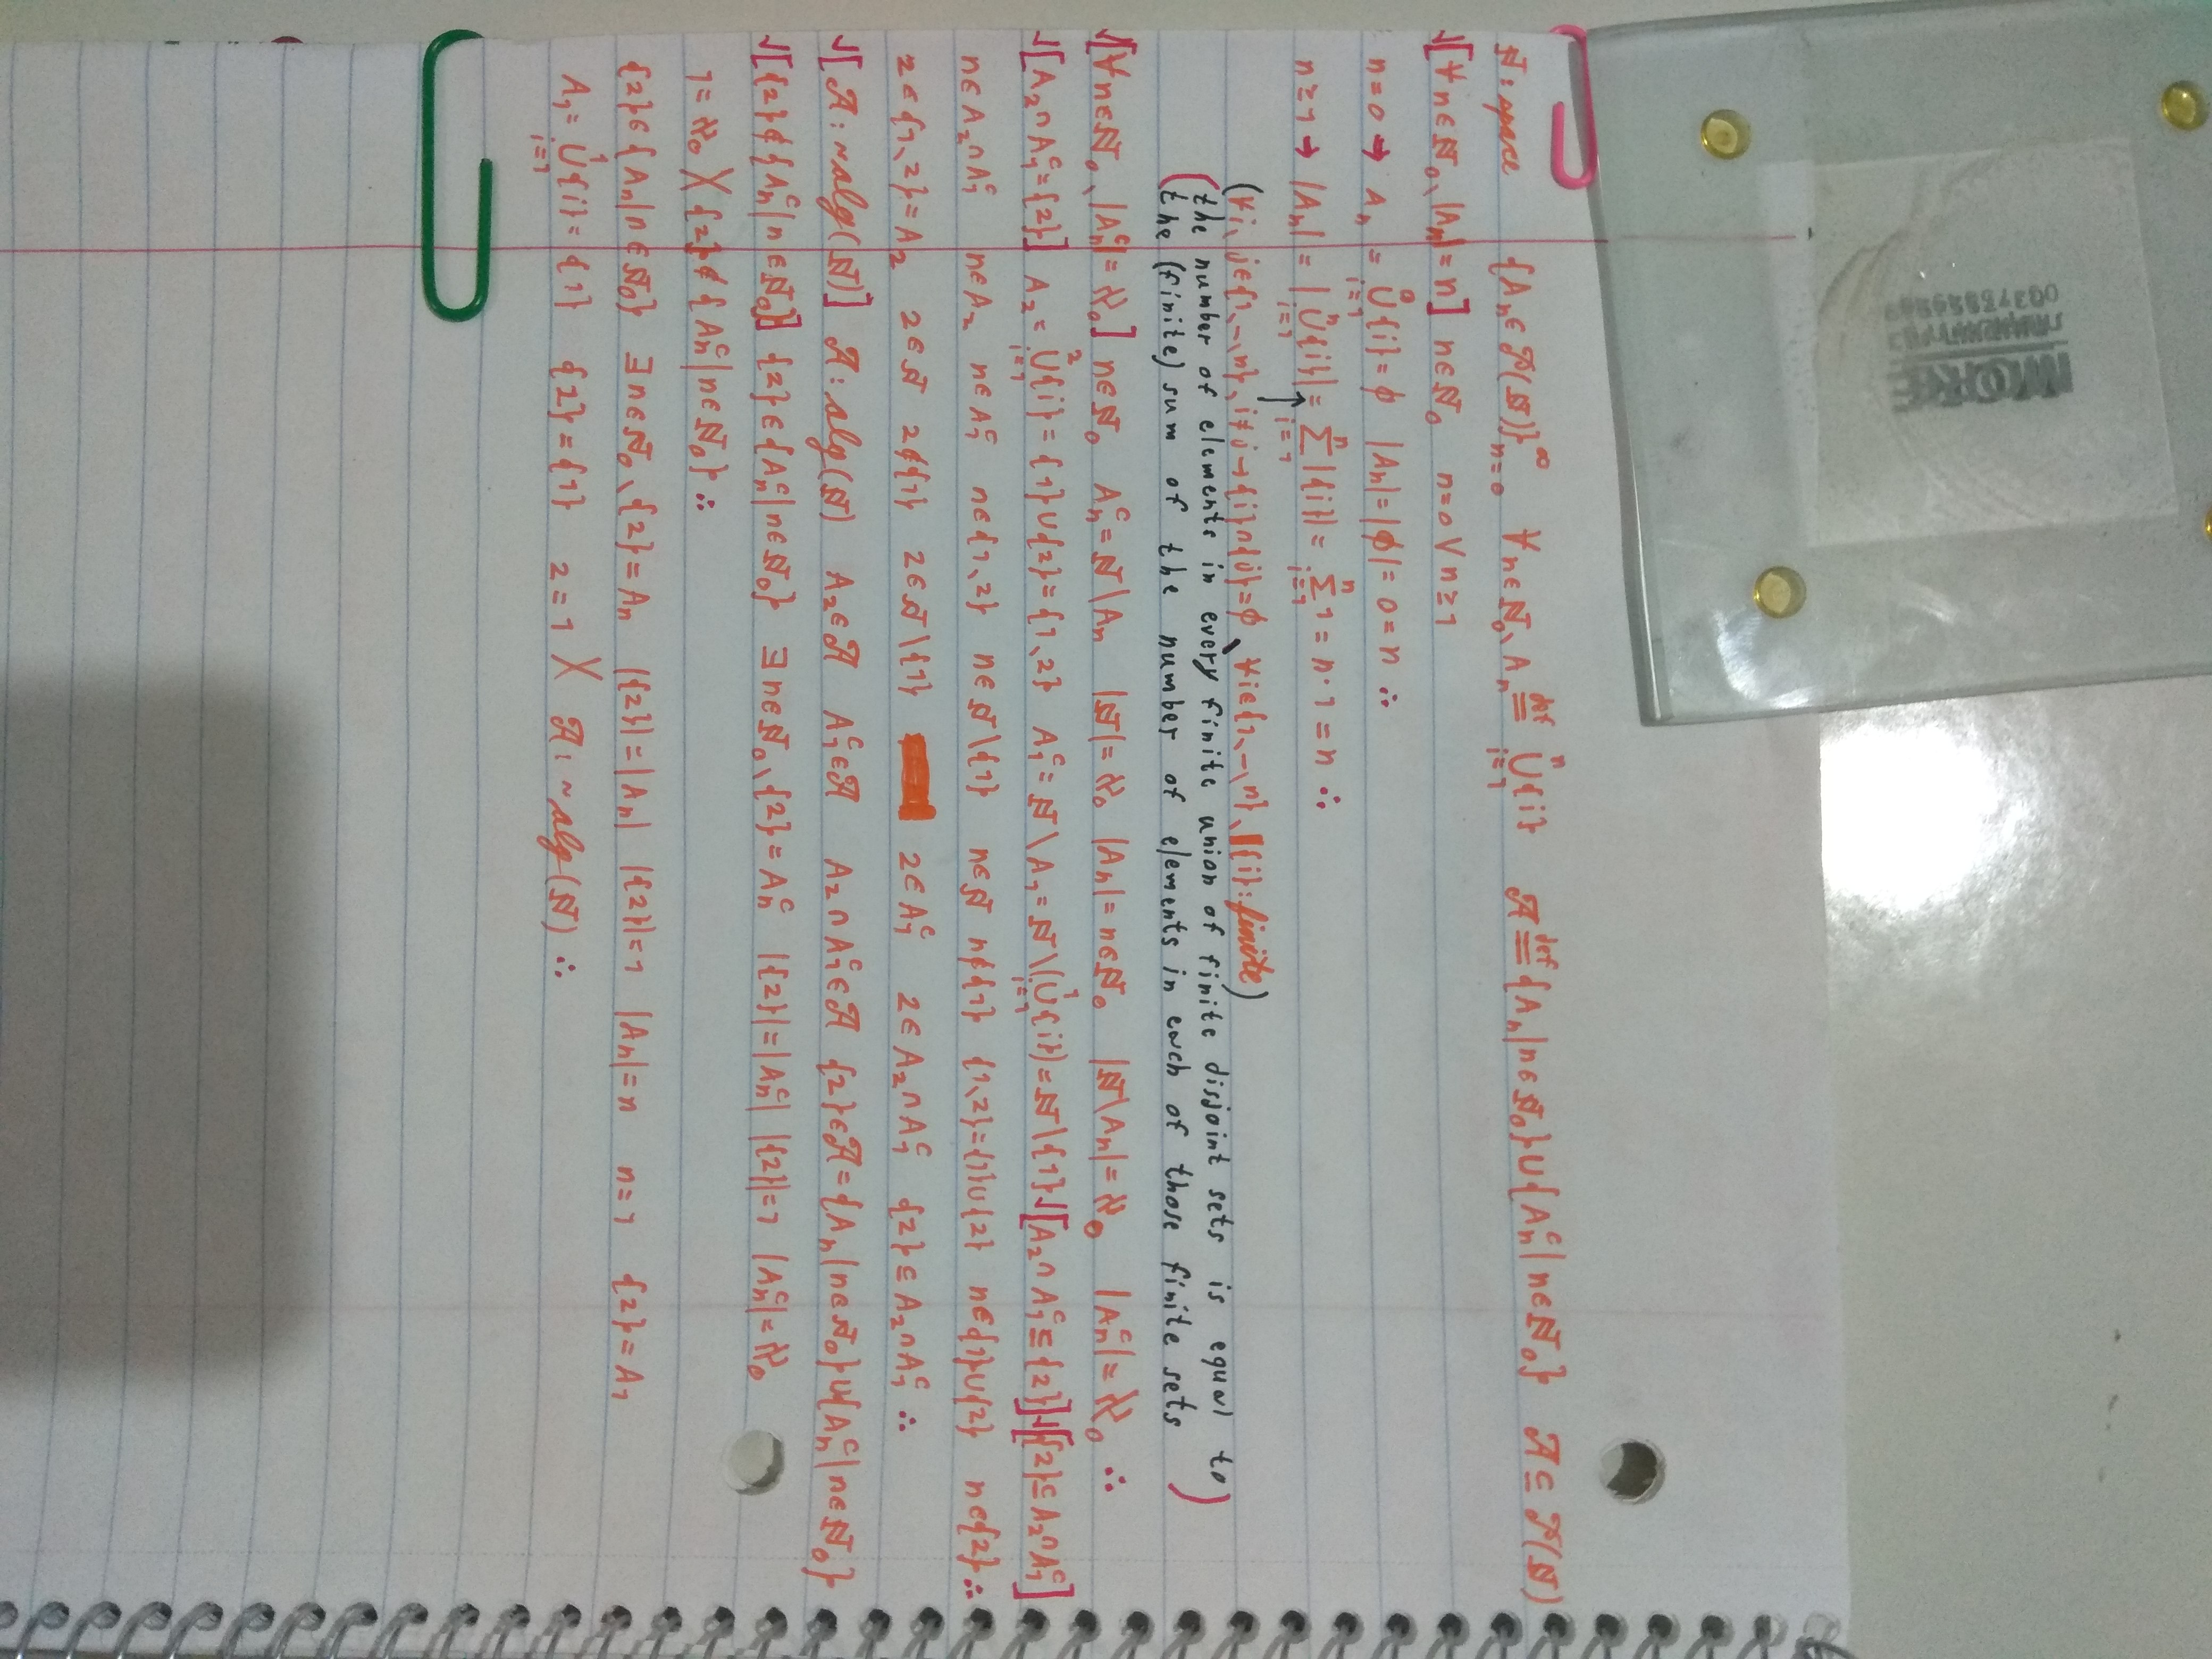 ℕ: space {Aₙ∈𝒫(ℕ)}ₙ₌₀^∞ ∀n∈ℕ₀, Aₙ ≝ ⋃ᵢ₌₁ⁿ{i} 𝒜 ≝ {Aₙ|n∈ℕ₀}∪{Aₙᶜ|n∈ℕ₀} 𝒜⊆𝒫(ℕ)
√[∀n∈ℕ₀, |Aₙ|=n] n∈ℕ₀ n=0 ∨ n≥1
n=0 → Aₙ = ⋃ᵢ₌₁⁰{i}=ϕ |Aₙ|=|ϕ|=0=n ∴
n≥1 → |Aₙ| = |⋃ᵢ₌₁ⁿ{i}| = ∑ᵢ₌₁ⁿ|{i}| = ∑ᵢ₌₁ⁿ1 = n·1 = n ∴
(∀i,j∈{1,–,n}, i≠j→{i}∩{j}=ϕ, ∀i∈{1,–,n}, {i}: finite)
(the number of elements in every finite union of finite disjoint sets is equal to)
(the (finite) sum of the number of elements in each of those finite sets)
√[∀n∈ℕ₀, |Aₙᶜ|=ℵ₀] n∈ℕ₀ Aₙᶜ=ℕ\Aₙ |ℕ|=ℵ₀ |Aₙ|=n∈ℕ₀ |ℕ\Aₙ|=ℵ₀ |Aₙᶜ|=ℵ₀ ∴
√[A₂∩A₁ᶜ={2}] A₂=⋃ᵢ₌₁²{i}={1}∪{2}={1,2} A₁ᶜ=ℕ\A₁=ℕ\(⋃ᵢ₌₁¹{i})=ℕ\{1} √[A₂∩A₁ᶜ⊆{2}] √[{2}⊆A₂∩A₁ᶜ]
n∈A₂∩A₁ᶜ n∈A₂ n∈A₁ᶜ n∈{1,2} n∈ℕ\{1} n∈ℕ n∉{1} {1,2}={1}∪{2} n∈{1}∪{2} n∈{2} ∴
2∈{1,2}=A₂ 2∈ℕ 2∉{1} 2∈ℕ\{1} 2∈A₁ᶜ 2∈A₂∩A₁ᶜ {2}⊆A₂∩A₁ᶜ ∴
√[𝒜:~alg(ℕ)] 𝒜:alg(ℕ) A₂∈𝒜 A₁ᶜ∈𝒜 A₂∩A₁ᶜ∈𝒜 {2}∈𝒜={Aₙ|n∈ℕ₀}∪{Aₙᶜ|n∈ℕ₀}
√[{2}∉{Aₙᶜ|n∈ℕ₀}] {2}∈{Aₙᶜ|n∈ℕ₀} ∃n∈ℕ₀, {2}=Aₙᶜ |{2}|=|Aₙᶜ| |{2}|=1 |Aₙᶜ|=ℵ₀
1=ℵ₀ ╳ {2}∉{Aₙᶜ|n∈ℕ₀} ∴
{2}∈{Aₙ|n∈ℕ₀} ∃n∈ℕ₀, {2}=Aₙ |{2}|=|Aₙ| |{2}|=1 |Aₙ|=n n=1 {2}=A₁
A₁=⋃ᵢ₌₁¹{i}={1} {2}={1} 2=1 ╳ 𝒜:~alg(ℕ) ∴